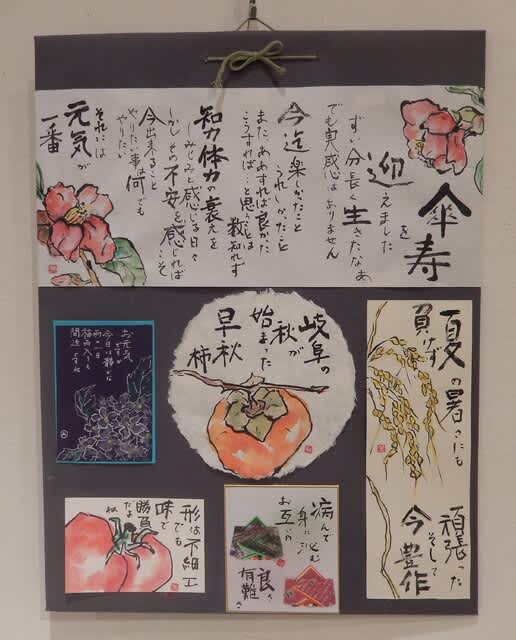 傘寿
を
迎えました
ずい分長く生きたなあ
でも実感心はありません
今迄楽しかったこと
うれしかったこと
また、ああすれば良かった
こうすればと思うことは
数知れず
知力体力の衰えを
しみじみと感じる日々
しかしその不安を感じればこそ
今出来ること
やりたい事は何でも
やりたい
それには
元気が
一番
お元気
ですか
今日は静かな
雨の一日
梅雨入りも
間近ですね
岐阜の
秋が
始まった
早秋
柿
夏の暑さにも
負けず
頑張った
そして
今豊作
形は不細工
でも
味で
勝負
だよ
ね
病んで
身に沁む
お互いの
良さ
有難さ